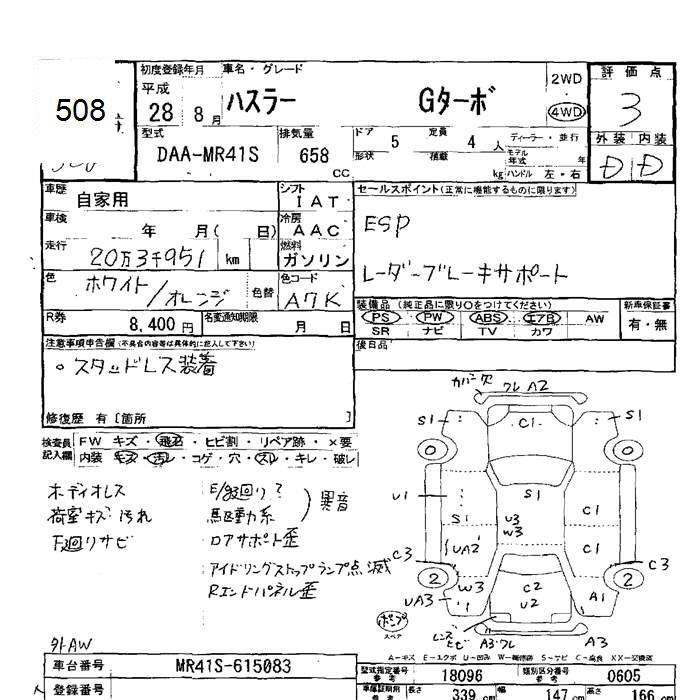 508
初度登録年月 車名・グレード
平成
28 8月 ハスラー Gターボ
2WD
4WD
評価点
3
外装 内装
D D
型式 排気量 ドア 5 定員 4人 ディーラー・並行
DAA-MR41S 658 CC 形状 積載 kg モデル年式 年
ハンドル 左・右
車歴 自家用 シフト IAT セールスポイント(正常に機能するものに限ります)
車検 年 月( 日) 冷房 AAC ESP
走行 20万3千951 km 燃料 ガソリン レーダーブレーキサポート
色 ホワイト/オレンジ 色替 色コード A7K
装備品(純正品に限り○をつけてください) 新車保証書
PS PW ABS エアB AW 有・無
SR ナビ TV カワ
R券 8,400円 名変通知期限 月 日
後日品
注意事項申告欄(不具合内容等は具体的に記入して下さい)
。スタッドレス装着
修復歴 有[箇所 ]
検査員記入欄 FW キズ・飛石・ヒビ割・リペア跡・×要
内装 キズ・汚レ・コゲ・穴・スレ・キレ・破レ
ボディオレス E/g回り?
荷室キズ汚れ 駆動系 )異音
下回りサビ ロアサポート歪
アイドリングストップランプ点滅
Rエンドパネル歪
カバー欠 クレA2
S1 C1 S1
O O
U1 S1 S1 C1
U3
W3
C3 UA2 C1 C3
2 W3 C2 2
UA3 U2 A1
ポンプ
スペア レンズヒビ A3クレ A3
A-キズ E-エクボ U-凹み W-補修跡 S-サビ C-腐食 XX-交換済
外AW
車台番号 MR41S-615083
登録番号
型式指定番号 参考 18096 類別区分番号 参考 0605
車庫証明用 参考 長さ 339 cm 幅 147 cm 高さ 166 cm